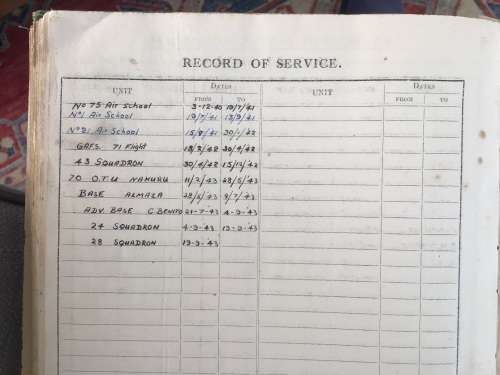 RECORD OF SERVICE.
UNIT DATES UNIT DATES
FROM TO FROM TO
No 75 Air School 3-12-40 19/7/41
No1 Air School 19/7/41 13/9/41
No 21 Air School 15/9/41 30/1/42
GAFS. 71 Flight 18/2/42 30/4/42
43 SQUADRON 30/4/42 15/12/42
70 O.T.U NAKURU 11/2/43 28/5/43
BASE ALMAZA 28/5/43 9/7/43
ADV BASE C BENITO 21-7-43 4-9-43
24 SQUADRON 4-9-43 19-9-43
28 SQUADRON 19-9-43